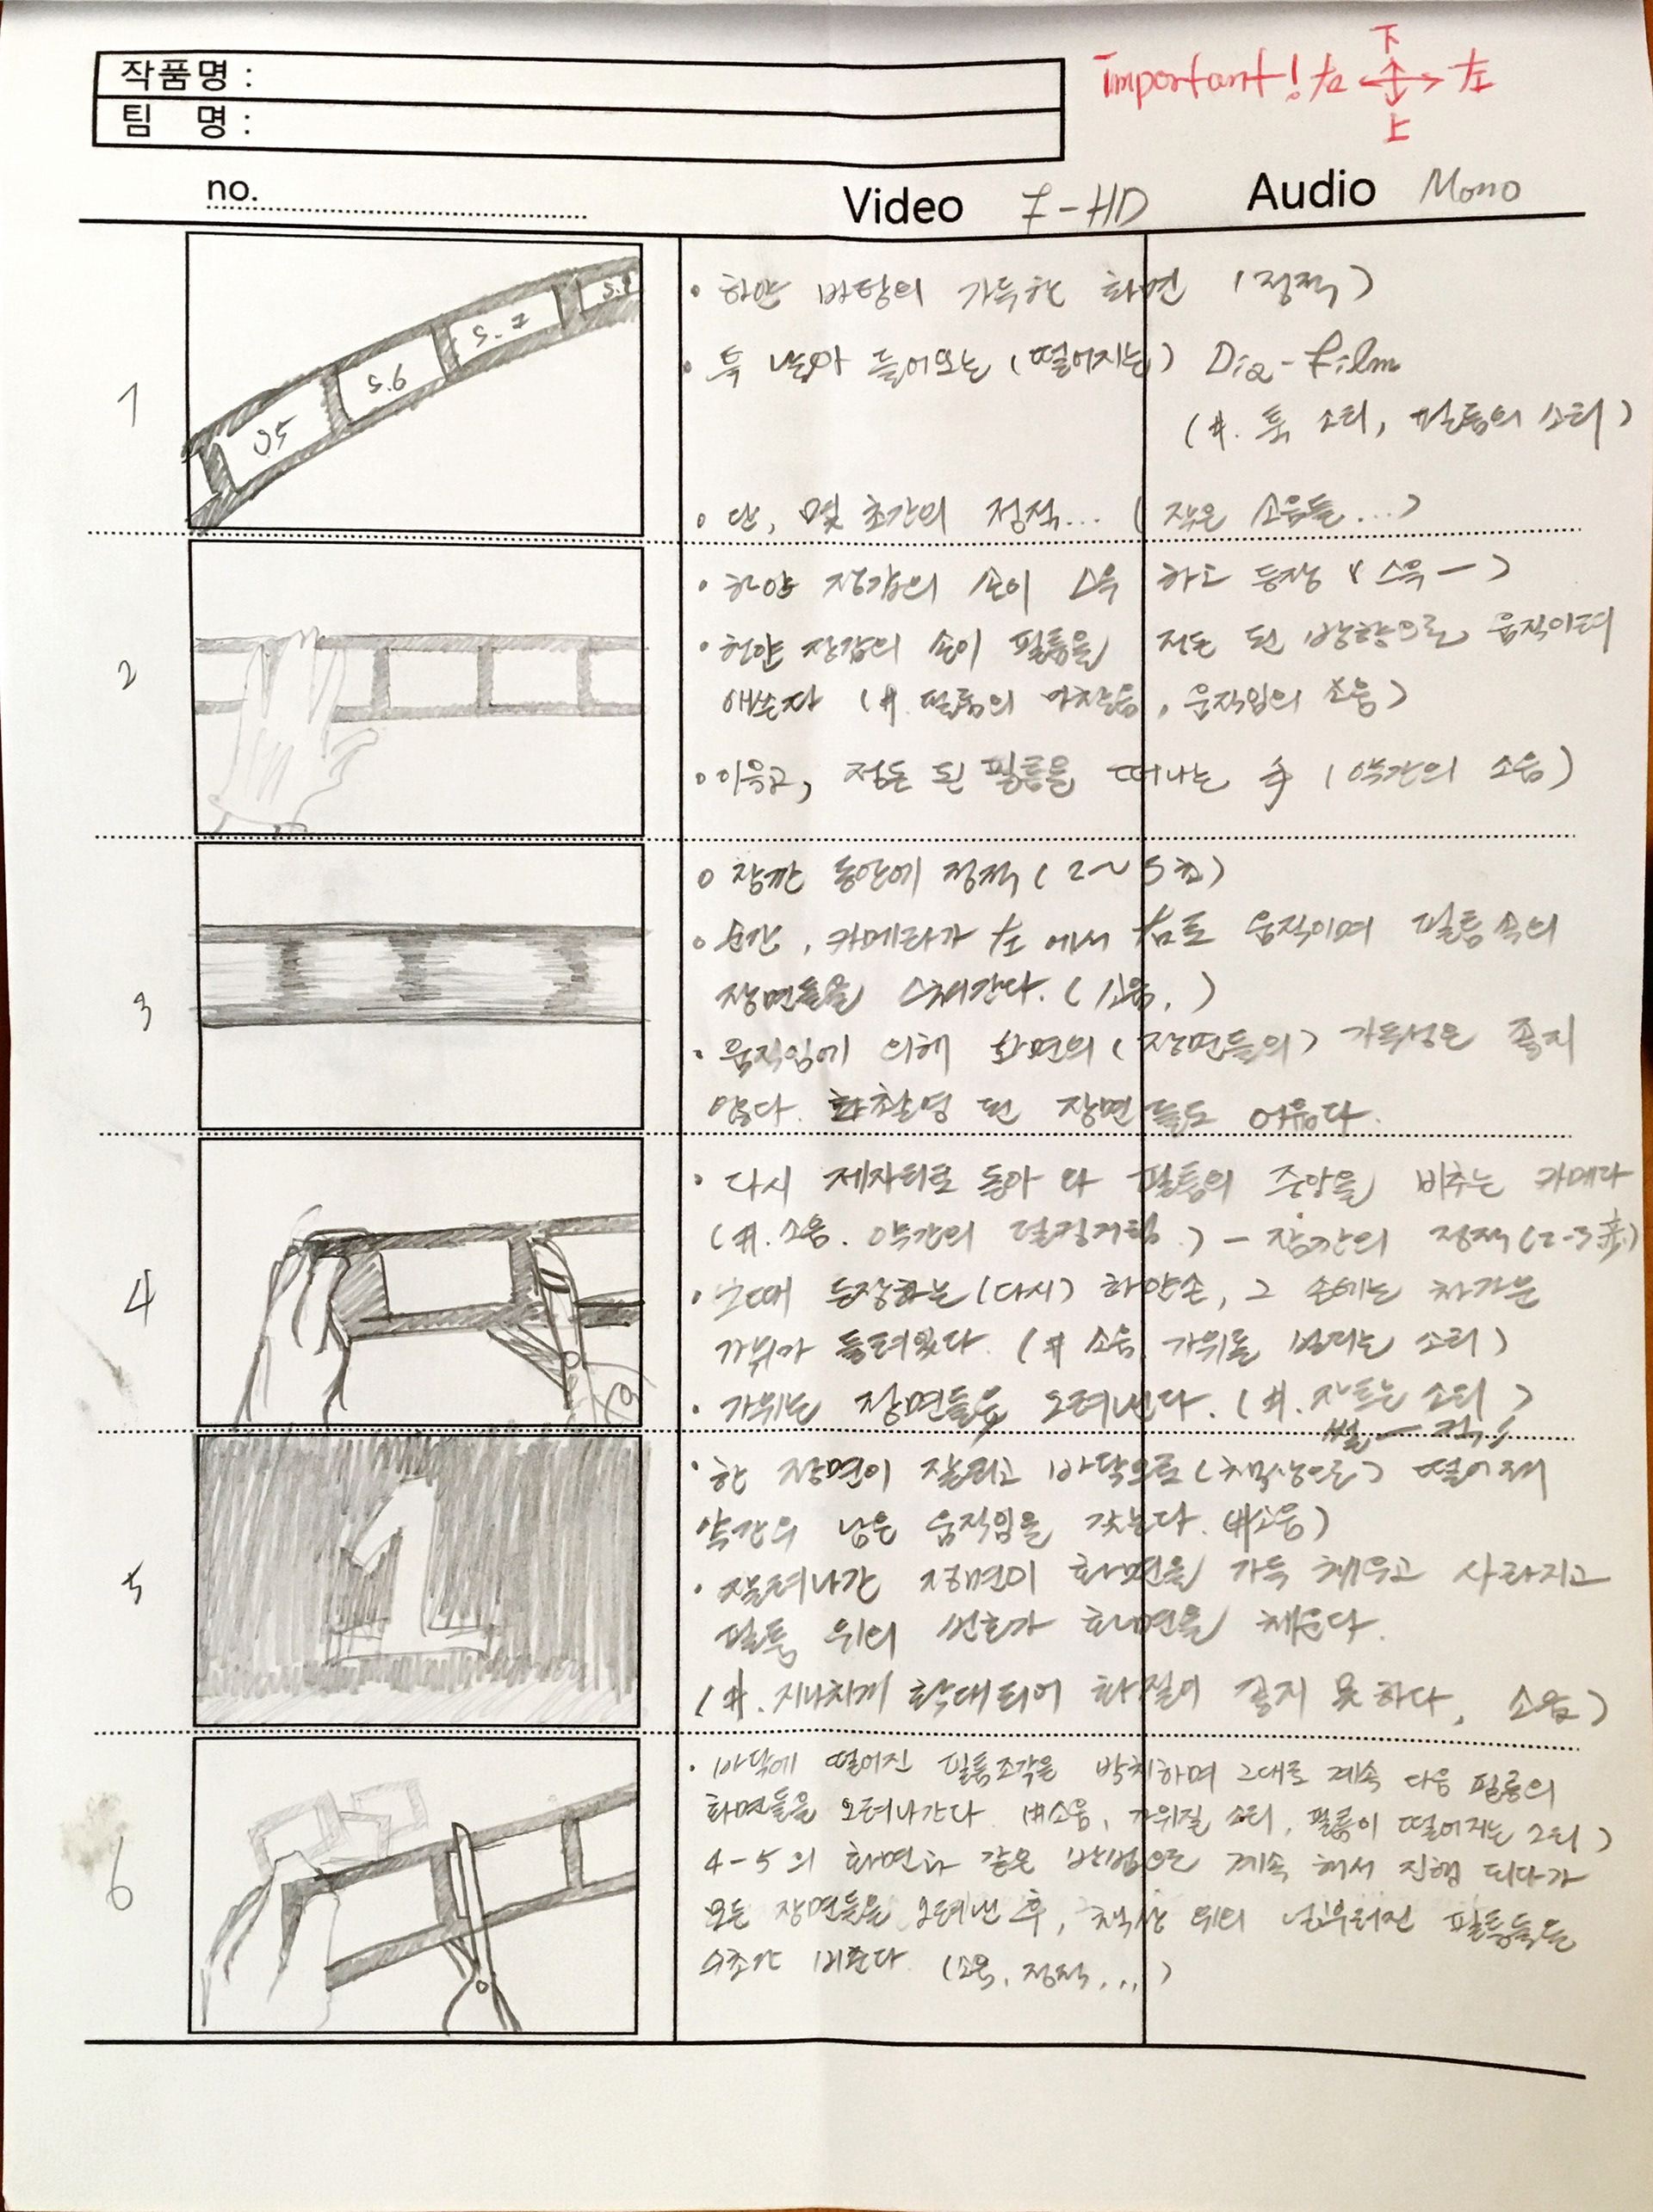 작품명 :
팀 명 :
important! 右 左
下
上
no.
Video F-HD
Audio Mono
1
S.5
S.6
S.7
S.8
· 하얀 바탕의 가득한 화면 (정적)
· 툭 날아 들어오는 (떨어지는) Dia-film
(#. 툭 소리, 필름의 소리)
· 단, 몇 초간의 정적... (작은 소음들...)
2
· 하얀 장갑의 손이 스윽 하고 등장 (스윽ㅡ)
· 하얀 장갑의 손이 필름을 정돈 된 방향으로 움직이며
애쓴다 (#. 필름의 마찰음, 움직임의 소음)
· 이윽고, 정돈 된 필름을 떠나는 손 (약간의 소음)
3
· 잠깐 동안에 정적 (2~5초)
· 순간, 카메라가 左에서 右로 움직이며 필름속의
장면들을 스쳐간다. (소음.)
· 움직임에 의해 화면의 (장면들의) 가독성은 좋지
않다. 촬영 된 장면들도 어둡다.
4
· 다시 제자리로 돌아 와 필름의 중앙을 비추는 카메라
(#. 소음. 약간의 덜컹거림.) - 잠깐의 정적 (2-3초)
· 그때 등장하는 (다시) 하얀손, 그 손에는 차가운
가위가 들려있다. (# 소음. 가위를 벌리는 소리)
· 가위는 장면들을 오려낸다. (#. 자르는 소리)
5
· 한 장면이 잘리고 바닥으로 (책상으로) 떨어져
약간의 남은 움직임을 갖는다. (#소음)
· 잘려나간 장면이 화면을 가득 채우고 사라지고
필름 위의 번호가 화면을 채운다.
(#. 지나치게 확대되어 화질이 좋지 못하다, 소음)
6
· 바닥에 떨어진 필름조각을 방치하며 그대로 계속 다음 필름의
화면들을 오려나간다. (#소음, 가위질 소리, 필름이 떨어지는 소리)
4-5의 화면과 같은 방법으로 계속 해서 진행 되다가
모든 장면들을 오려낸 후, 책상 위의 널부러진 필름들을
수초간 비춘다. (소음, 정적...)